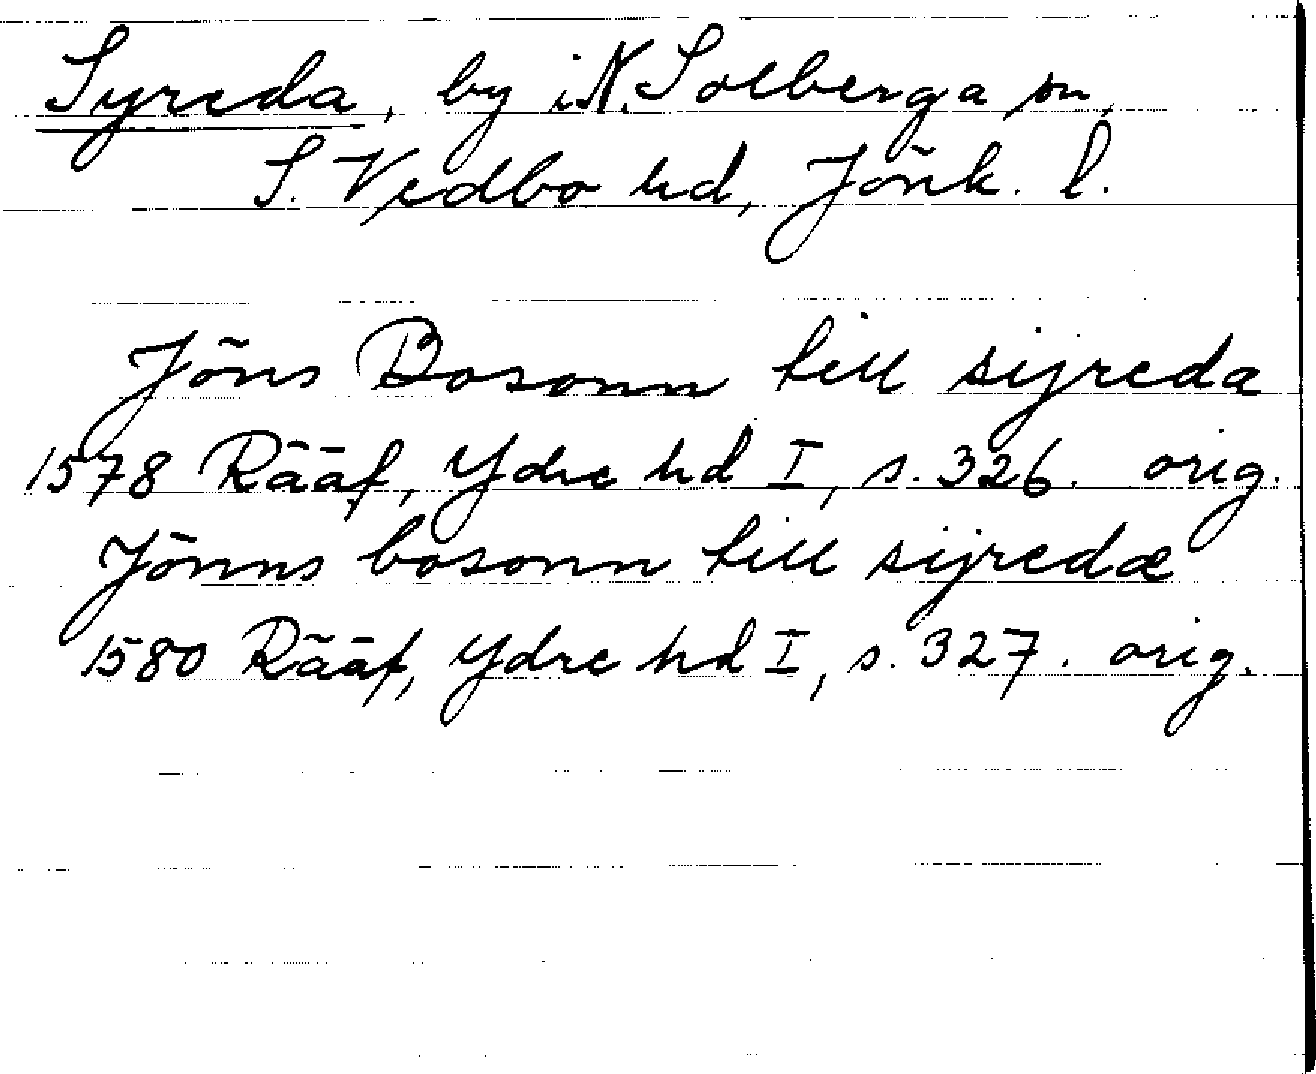 Syreda, by i N. Solberga sn,
S. Vedbo hd, Jönk. l.
Jöns Bosonn till sijreda
1578 Rääf, Ydre hd I, s. 326. orig.
Jönns bosonn till sijredæ
1580 Rääf, Ydre hd I, s. 327. orig.